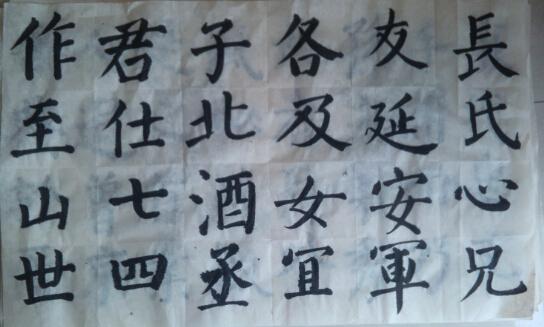 長氏心兄
友延安軍
各及女宜
子北酒丞
君仕七四
作至山世